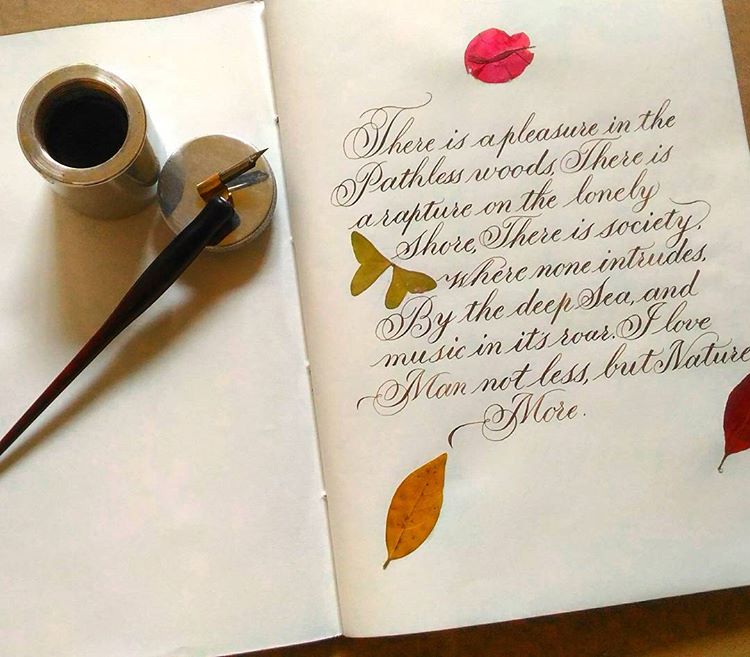 There is a pleasure in the
Pathless woods, There is
a rapture on the lonely
Shore, There is society,
where none intrudes,
By the deep Sea, and
music in its roar. I love
Man not less, but Nature
More.